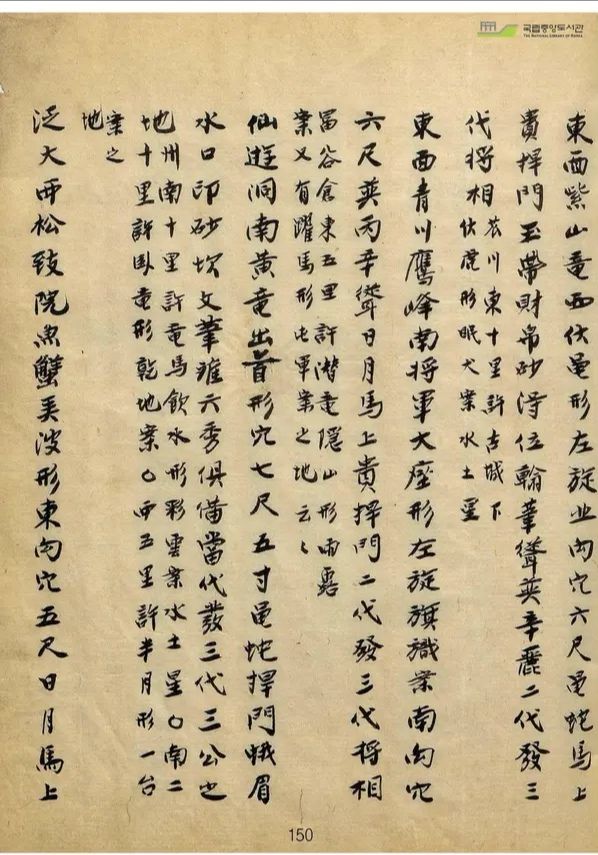 국립중앙도서관
THE NATIONAL LIBRARY OF KOREA
東西紫山竜西伏黽形左旋丑向穴六尺黽蛇馬上
貴捍門玉帶財帛砂淂位翰筆聳英辛麗二代發三
代将相
花川東十里許古城下
伏虎形眠犬案水土星
東西青川鷹峰南将軍大座形左旋旗職案南向穴
六尺英丙辛聳日月馬上貴捍門二代發三代将相
富谷倉東五里許潜竜隠山形雨露
案又有躍馬形屯軍案之地云〻
仙遊洞南黄竜出首形穴七尺五寸黽蛇捍門蛾眉
水口印砂坟文筆雖六秀俱備當代發三代三公之
地州南十里許竜馬飲水形彩雲案水土星〇南二
十里許卧竜形乾地案〇西五里許半月形一台
案之
地
泛大西松致院魚蟹美波形東向穴五尺日月馬上
150